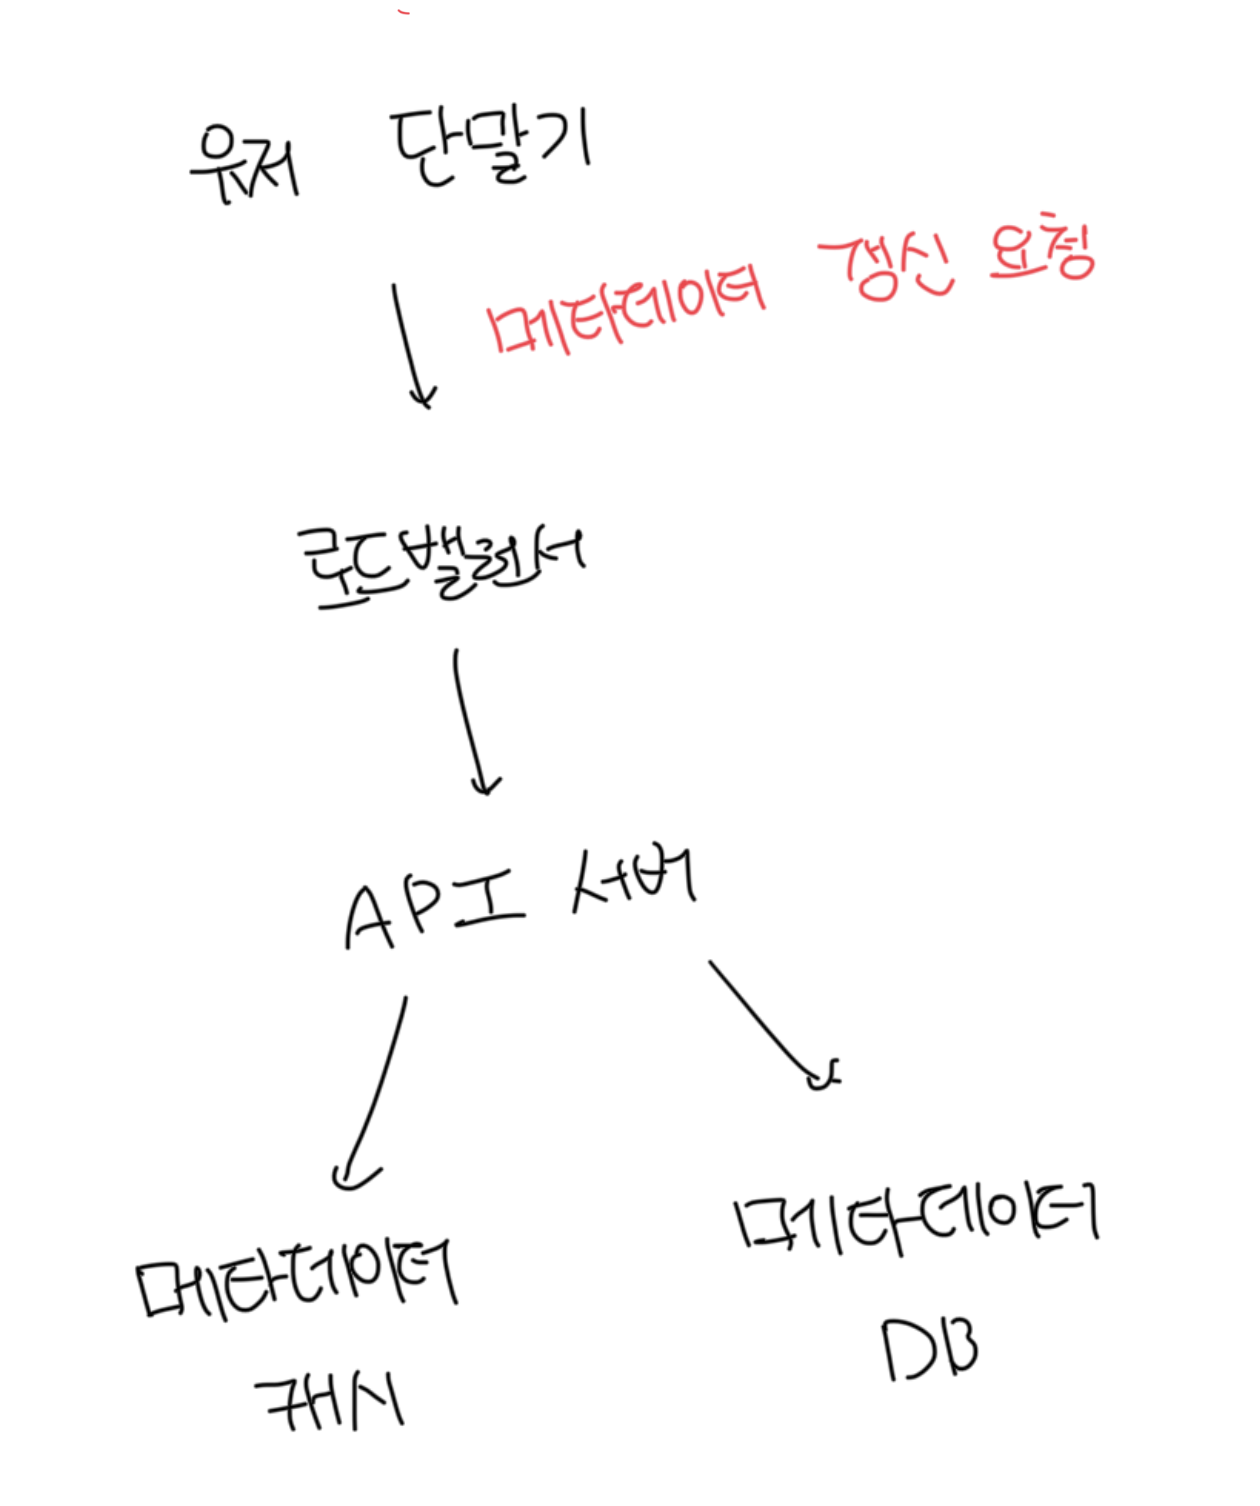 유저 단말기
메타데이터 갱신 요청
로드밸런서
API 서버
메타데이터
캐시
메타데이터
DB